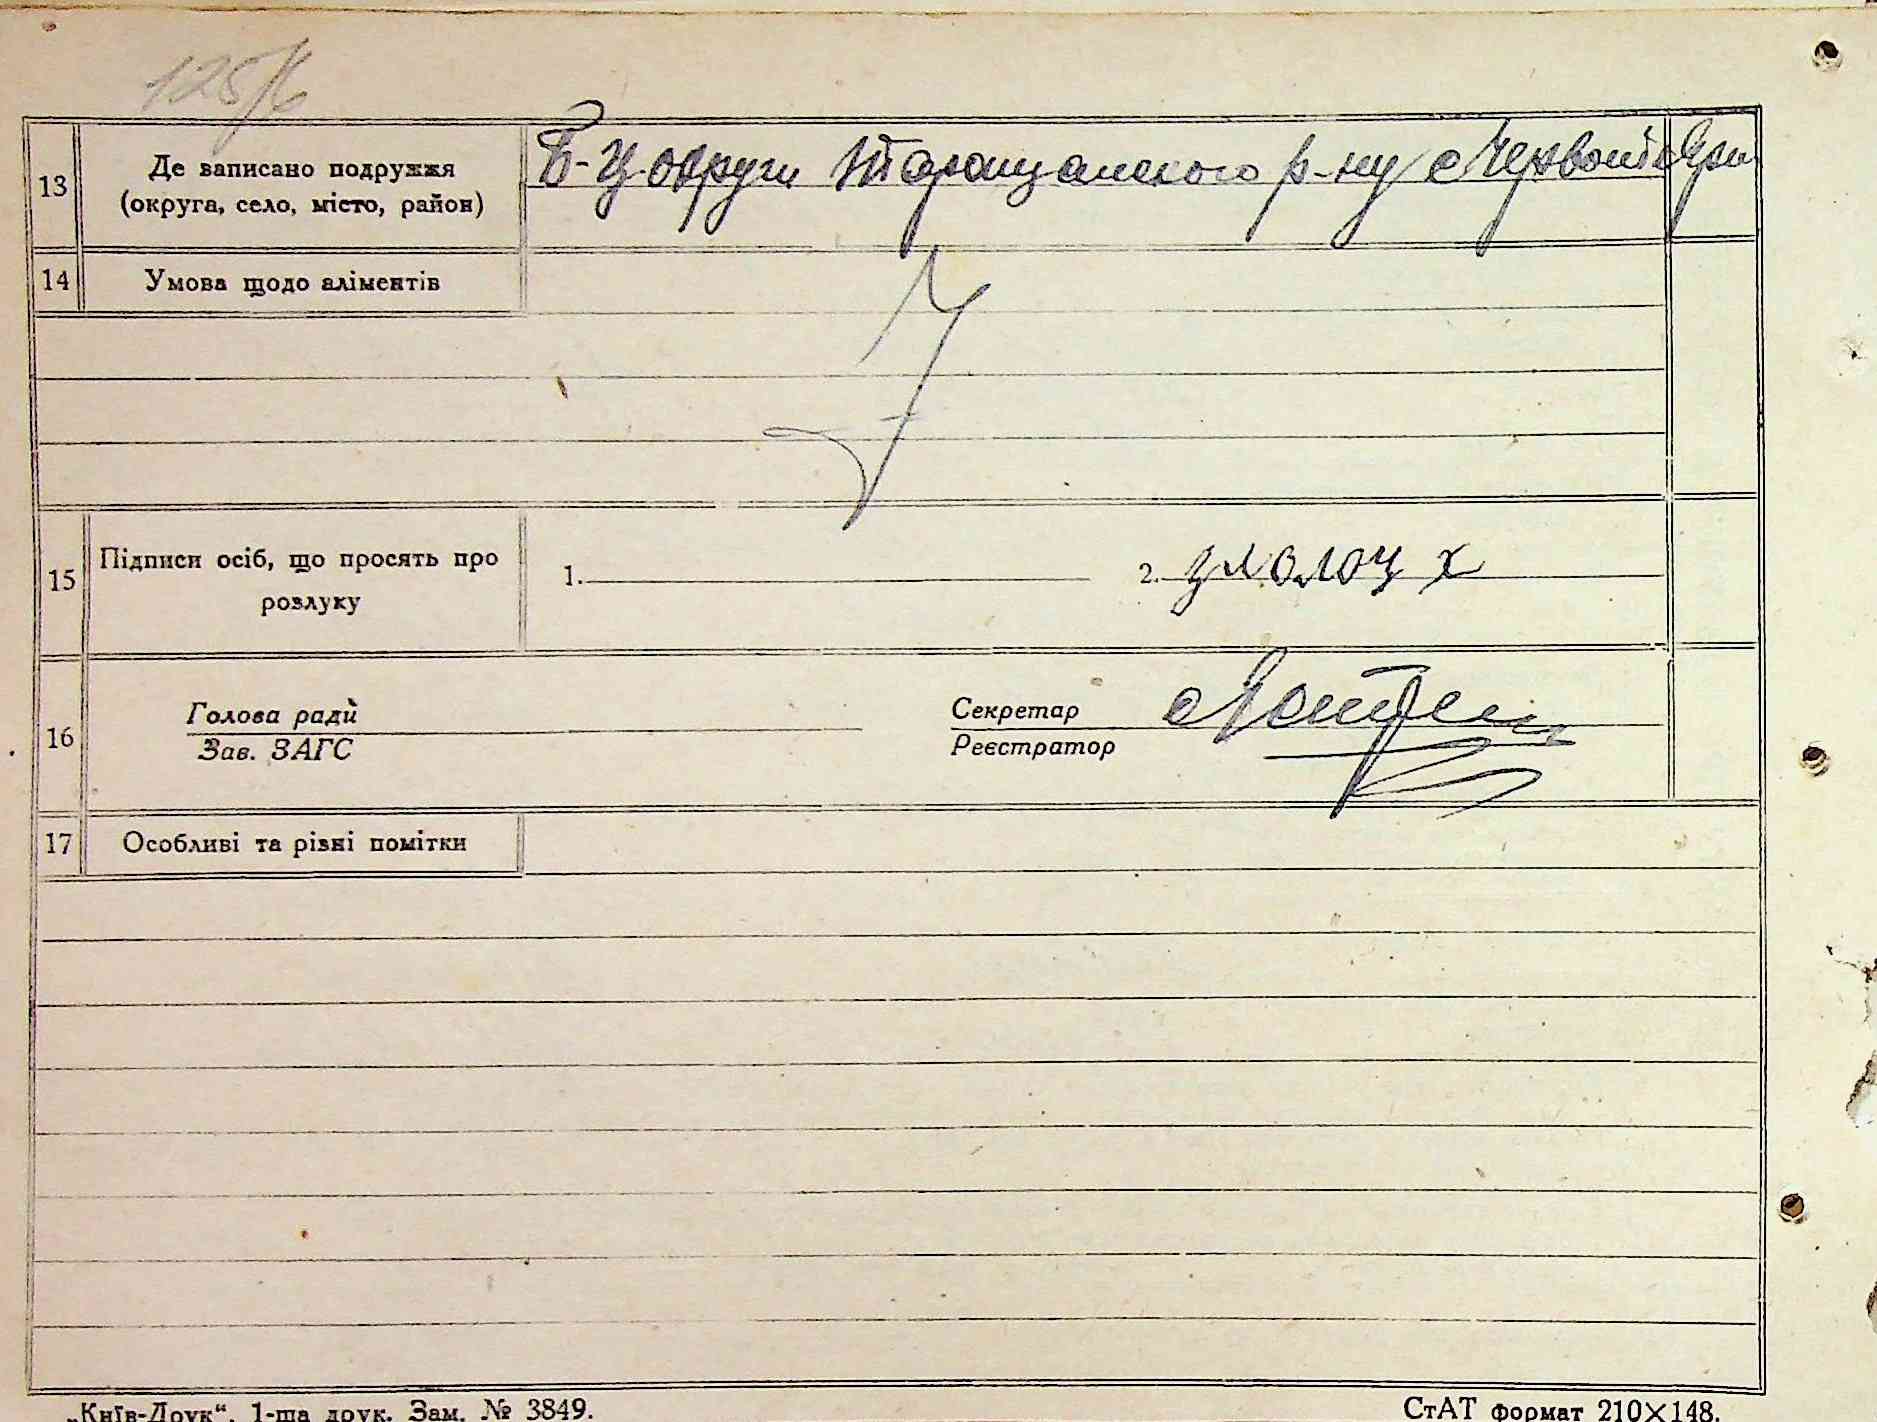 125/6
13 Де записано подружжя Б-Ц. округи Таращанского р-ну с. Червоний Яр
(округа, село, місто, район)
14 Умова щодо аліментів
15 Підписи осіб, що просять про 1. 2.
розлуку
16 Голова ради Секретар
Зав. ЗАГС Реєстратор
17 Особливі та різні помітки
„Київ-Друк“. 1-ша друк. Зам. № 3849. СтАТ формат 210×148.